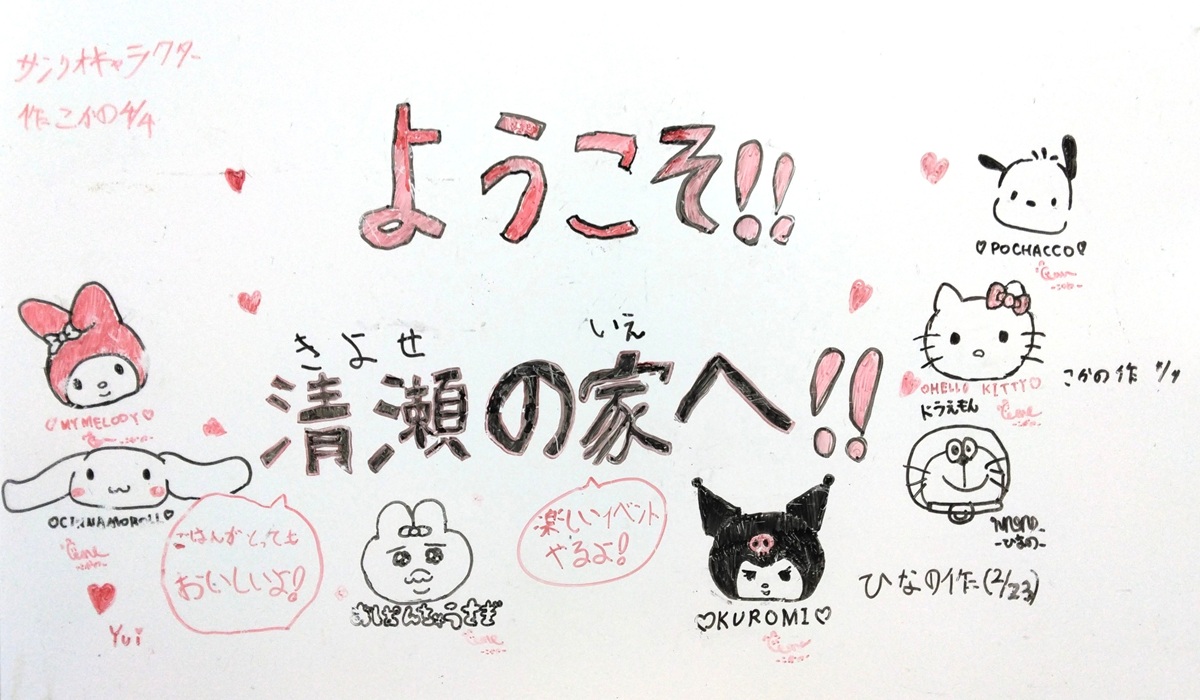 サンリオキャラクター
作 こかの 4/4
ようこそ!!
きよせ いえ
清瀬の家へ!!
♡POCHACCO♡
♡MY MELODY♡
♡HELLO KITTY♡
こかの 作
ドラえもん
♡CINNAMOROLL♡
ごはんがとっても
おいしいよ!
おぱんちゅうさぎ
楽しいイベント
やるよ!
♡KUROMI♡
momo
-ひなの-
ひなの作(2/23)
Yui